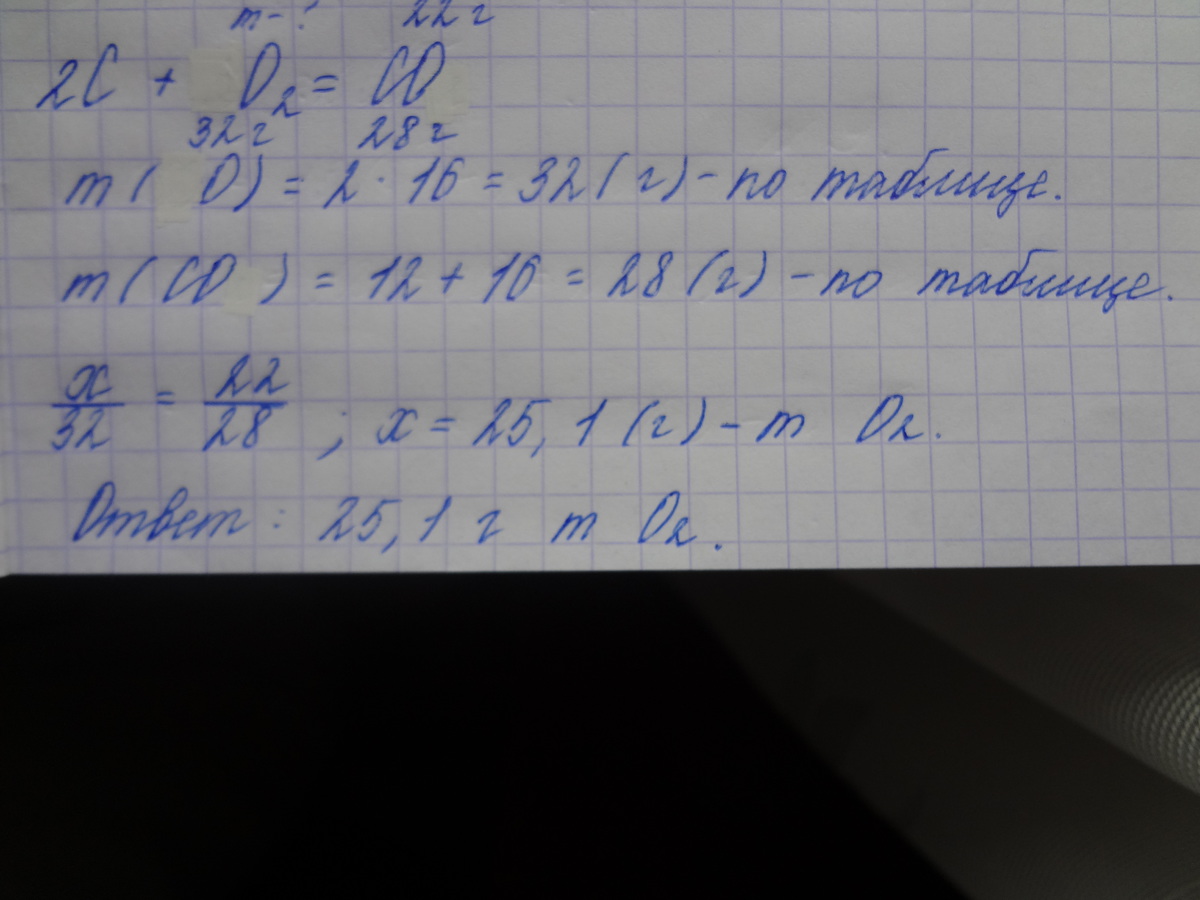 m - ? 22 г
2C + O₂ = CO
32 г 28 г
m ( O) = 2 · 16 = 32 (г) - по таблице.
m (CO ) = 12 + 16 = 28 (г) - по таблице.
x/32 = 22/28 ; x = 25,1 (г) - m O₂.
Ответ: 25,1 г m O₂.